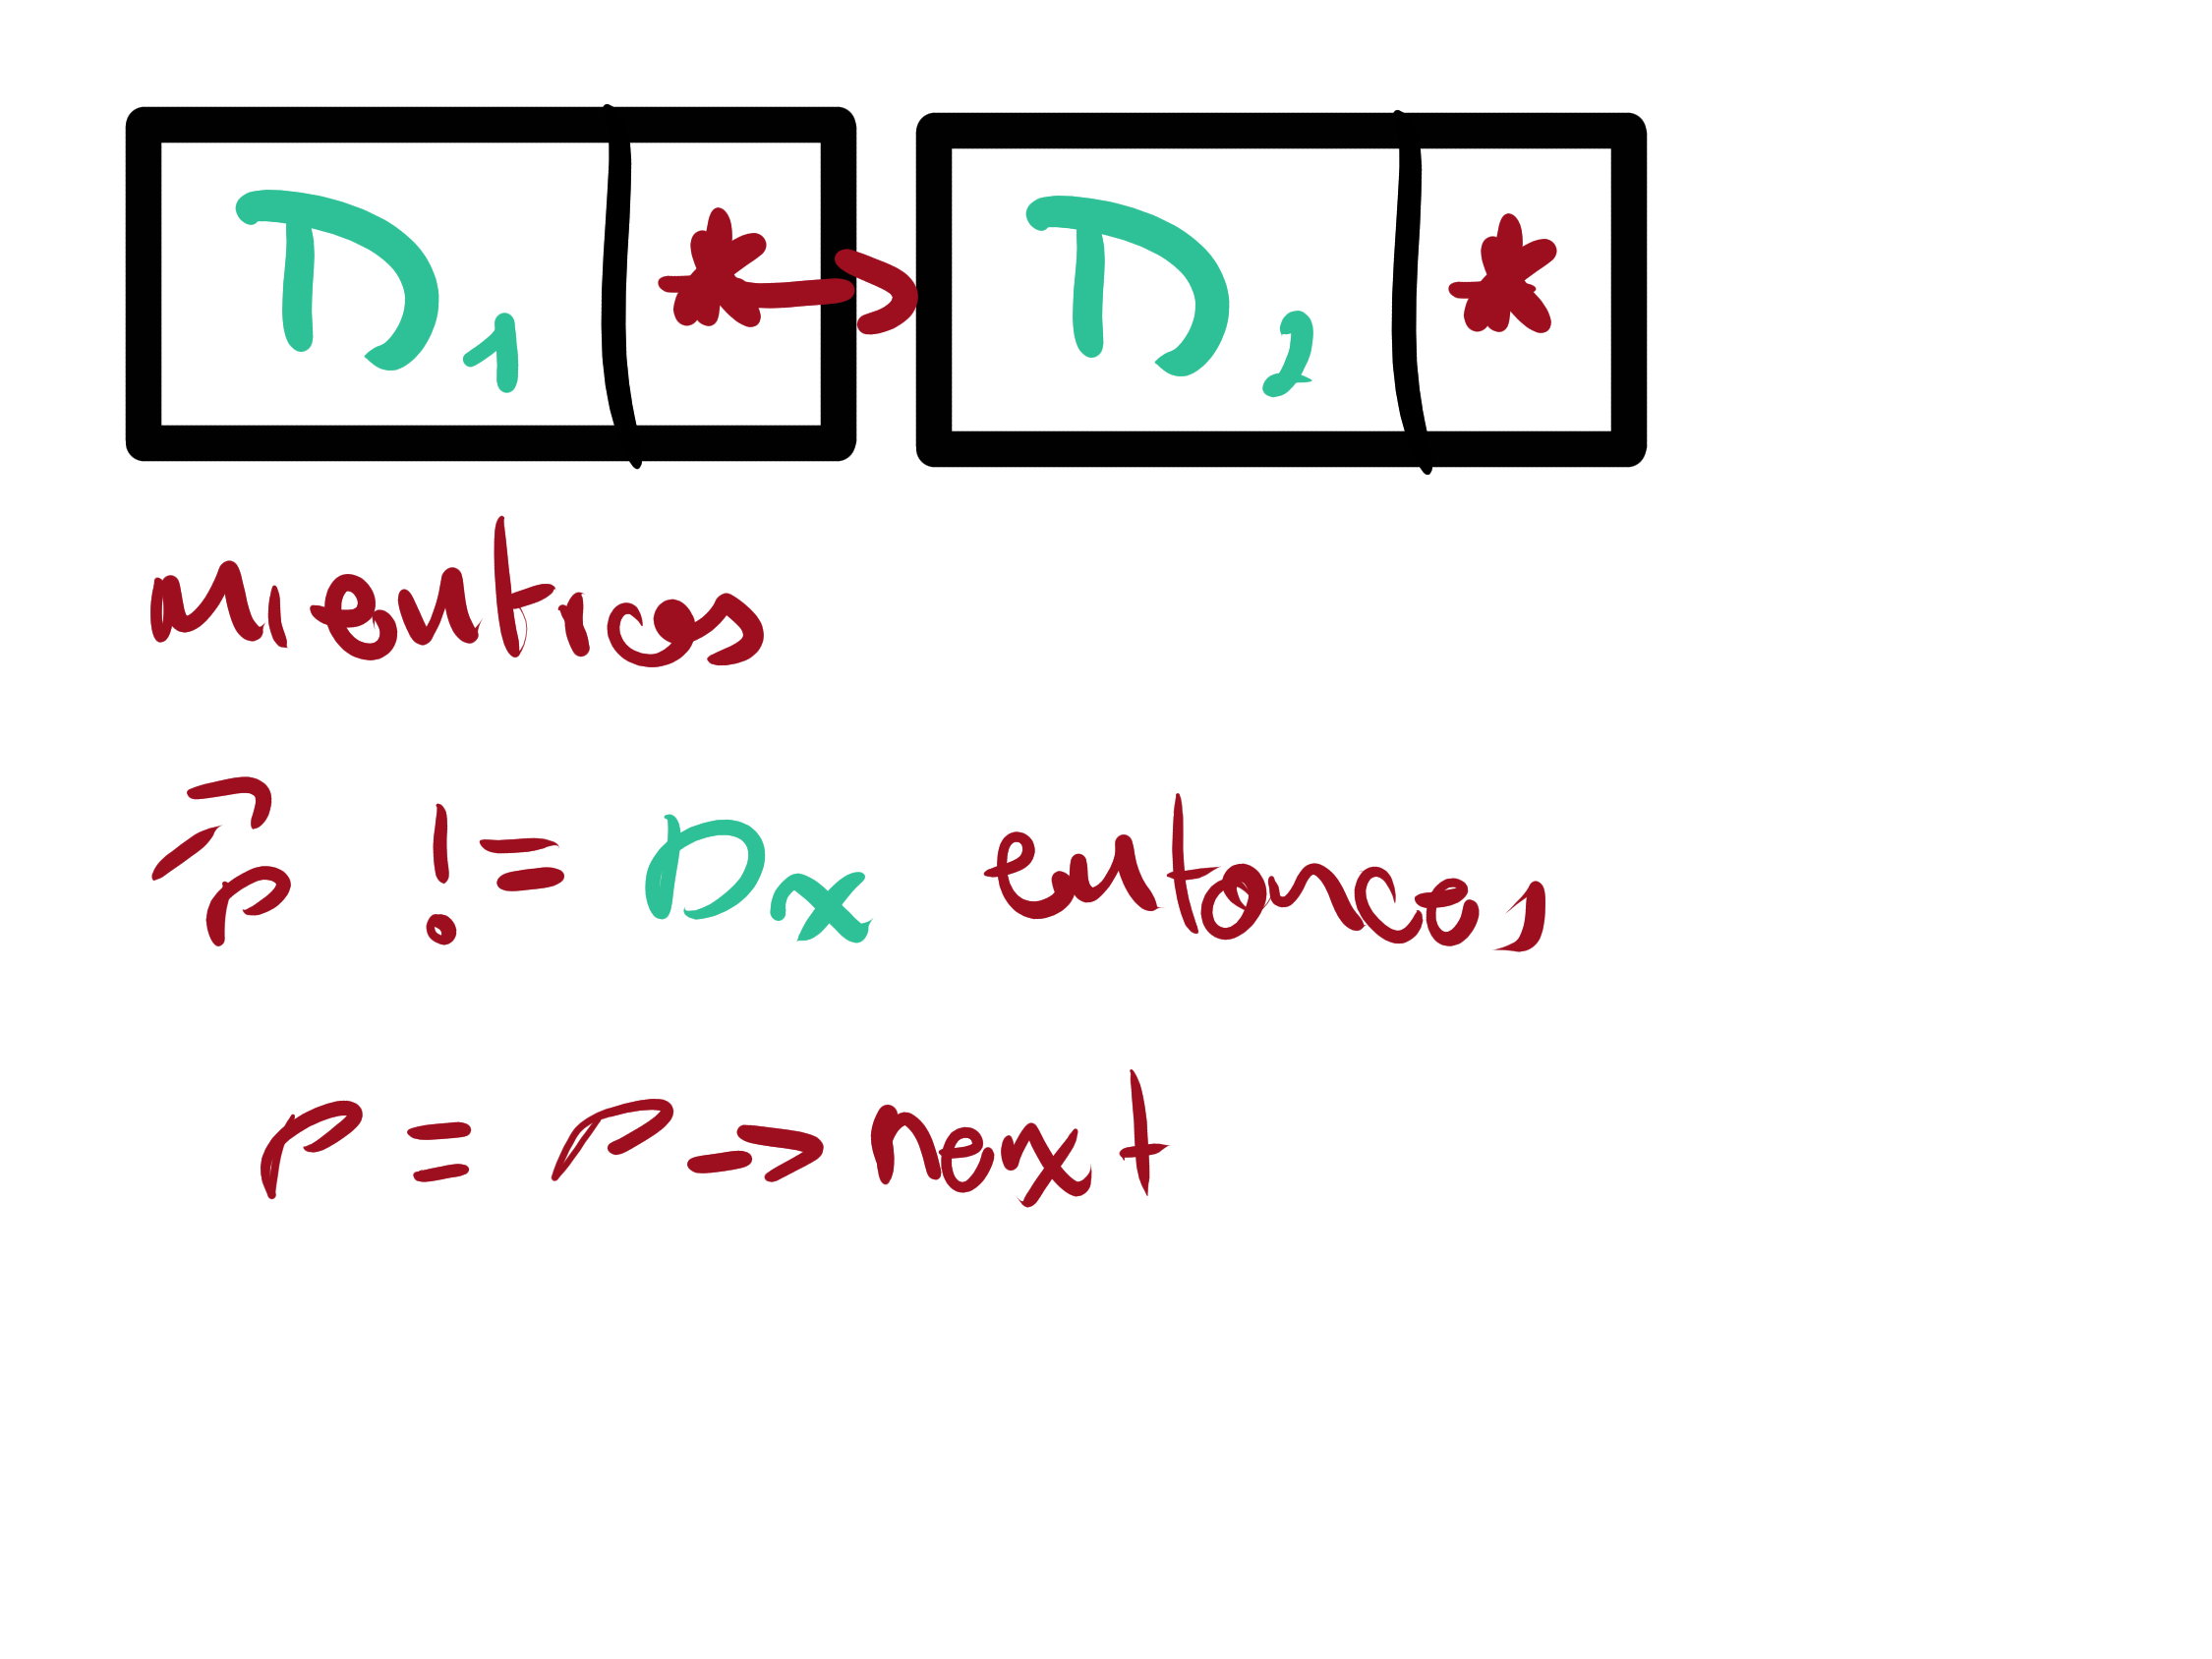 D1 * → D2 *
mientras
→p != Dx entonces
p = p -> next